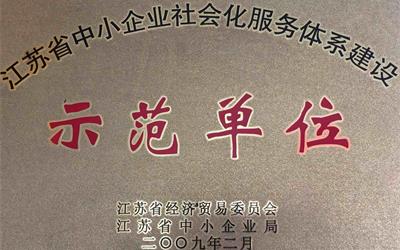 江苏省中小企业社会化服务体系建设
示范单位
江苏省经济贸易委员会
江苏省中小企业局
二〇〇九年二月